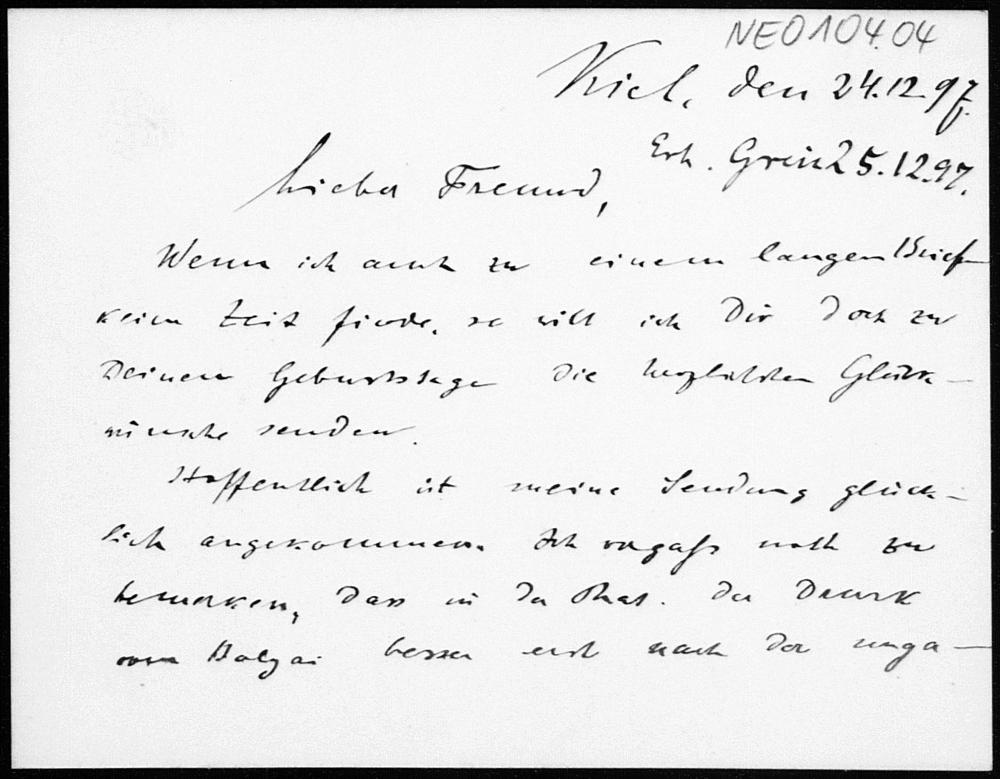 NE010404
Kiel, den 24.12.97.
Erh. Grein 25.12.97.
Lieber Freund,
Wenn ich auch zu einem langen Brief
keine Zeit finde, so will ich Dir doch zu
Deinem Geburtstage die herzlichsten Glück-
wünsche senden.
Hoffentlich ist meine Sendung glück-
lich angekommen. Ich vergass noch zu
bemerken, dass in der der Druck
vom besser erst nach der